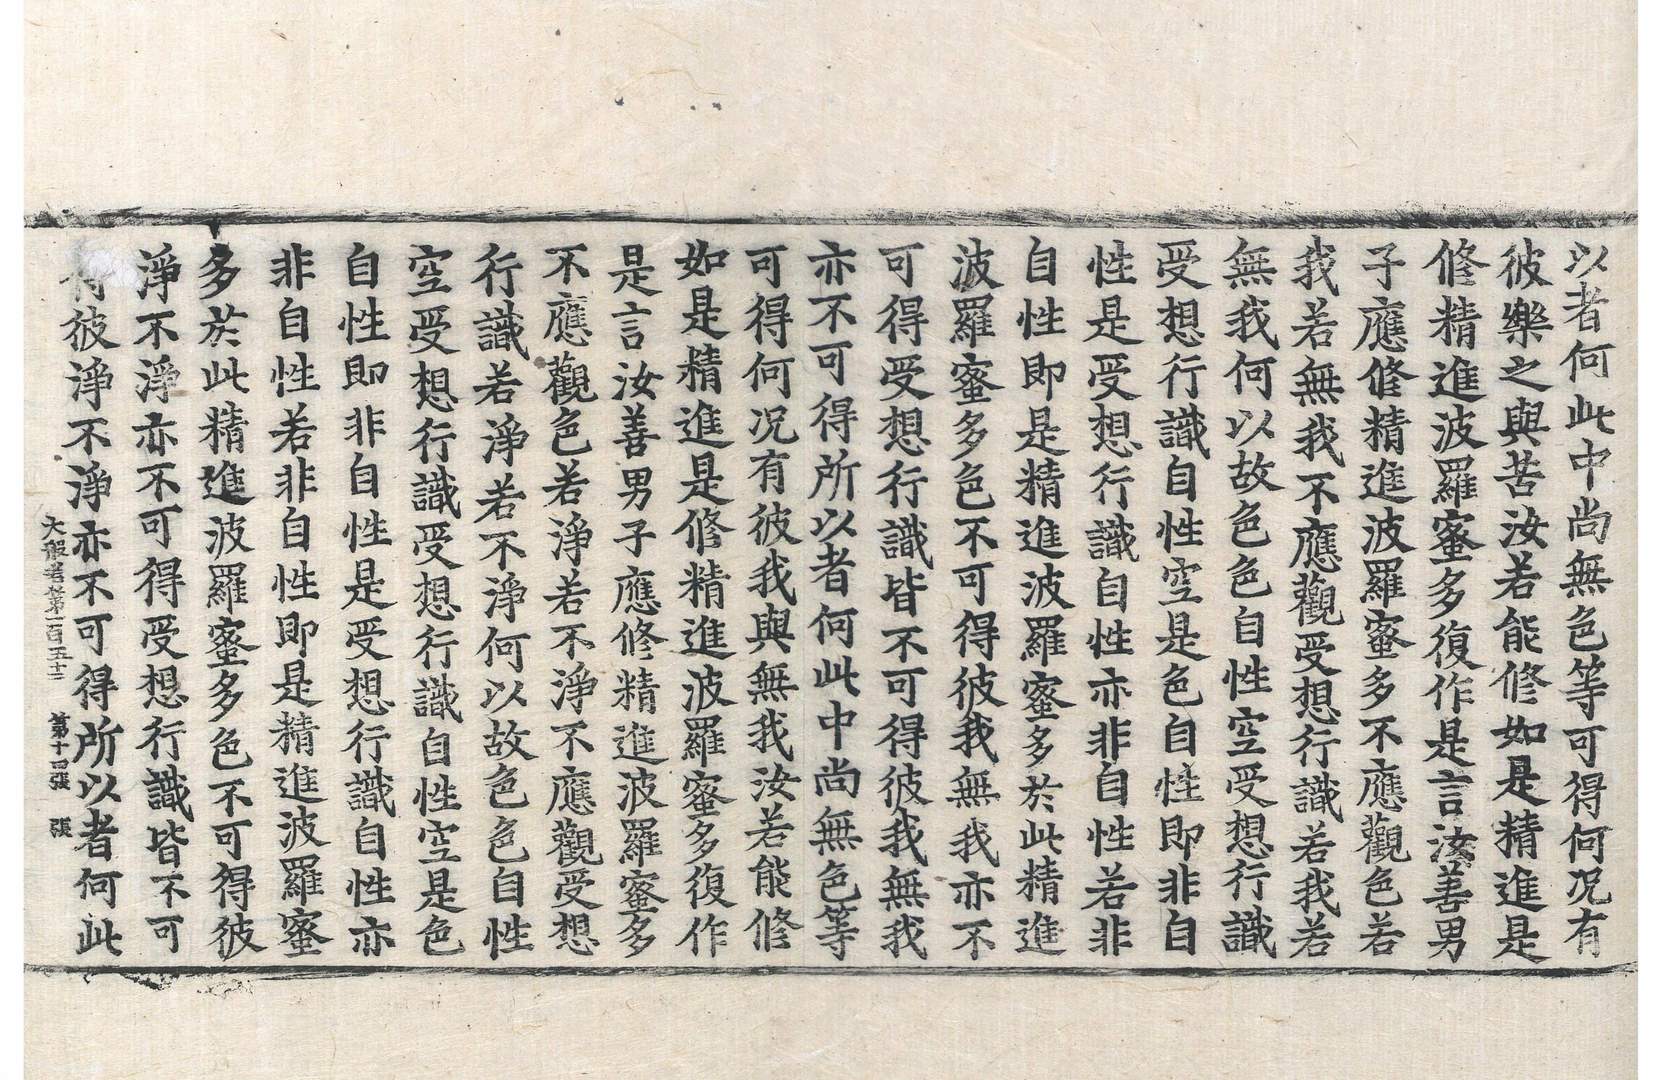 以者何此中尚無色等可得何况有
彼樂之與苦汝若能修如是精進是
修精進波羅蜜多復作是言汝善男
子應修精進波羅蜜多不應觀色若
我若無我不應觀受想行識若我若
無我何以故色色自性空受想行識
受想行識自性空是色自性即非自
性是受想行識自性亦非自性若非
自性即是精進波羅蜜多於此精進
波羅蜜多色不可得彼我無我亦不
可得受想行識皆不可得彼我無我
亦不可得所以者何此中尚無色等
可得何况有彼我與無我汝若能修
如是精進是修精進波羅蜜多復作
是言汝善男子應修精進波羅蜜多
不應觀色若淨若不淨不應觀受想
行識若淨若不淨何以故色色自性
空受想行識受想行識自性空是色
自性即非自性是受想行識自性亦
非自性若非自性即是精進波羅蜜
多於此精進波羅蜜多色不可得彼
淨不淨亦不可得受想行識皆不可
得彼淨不淨亦不可得所以者何此
大般若第一百五十二 第十四張 張